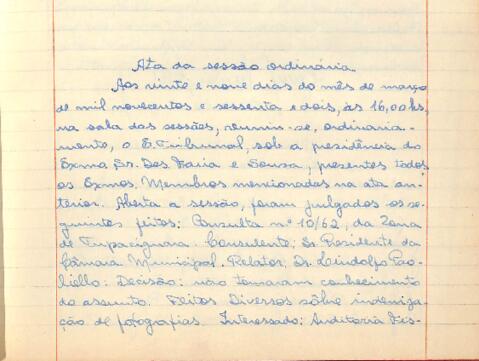 Ata da sessão ordinária.
Aos vinte e nove dias do mês de março
de mil novecentos e sessenta e dois, às 16,00 hs,
na sala das sessões, reuniu-se, ordinaria-
mente, o E. Tribunal, sob a presidência do
Exmo. Sr. Des. Faria e Sousa, presentes todos
os Exmos. Membros mencionados na ata an-
terior. Aberta a sessão, foram julgados os se-
guintes feitos: Consulta nº 10/62, da Zona
de Tupaciguara. Consulente: Sr. Presidente da
Câmara Municipal. Relator: Dr. Lindolfo Pao-
liello: Decisão: não tomaram conhecimento
do assunto. Feitos Diversos sôbre indeniza-
ção de fotografias. Interessado: Auditoria Fis-